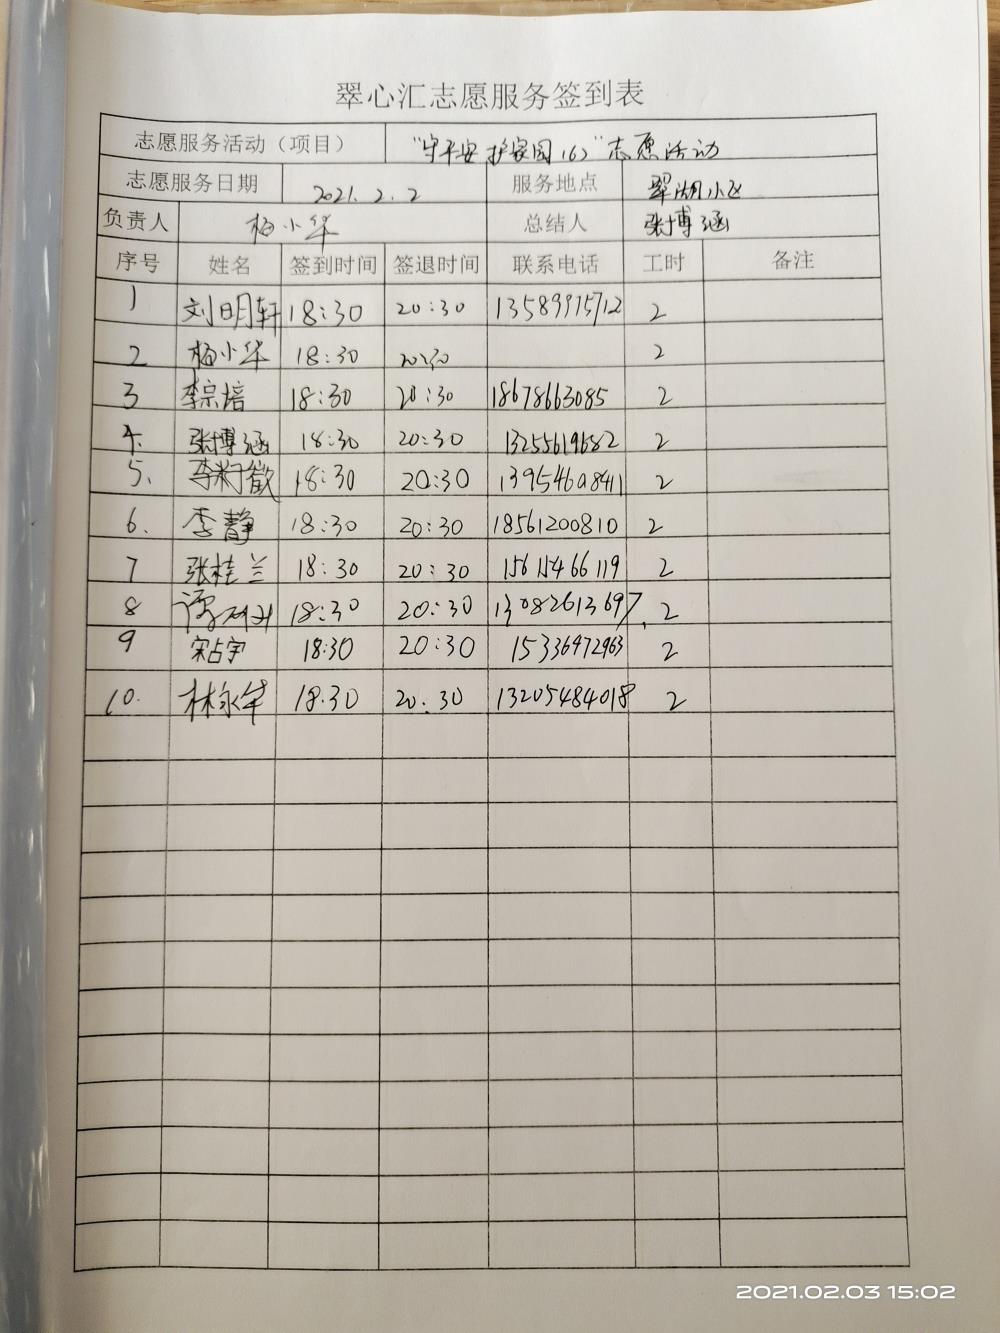 翠心汇志愿服务签到表
志愿服务活动（项目） "守平安 护家园162"志愿活动
志愿服务日期 2021.2.2 服务地点 翠湖小区
负责人 杨小华 总结人 张博涵
序号 姓名 签到时间 签退时间 联系电话 工时 备注
1 刘明轩 18:30 20:30 13589915712 2
2 杨小华 18:30 20:30 2
3 李宗培 18:30 20:30 18678663085 2
4. 张博涵 18:30 20:30 13255619682 2
5. 18:30 20:30 13954608411 2
6. 李静 18:30 20:30 18561200810 2
7 张桂兰 18:30 20:30 15615466119 2
8 18:30 20:30 13082613697 2
9 宋占宇 18:30 20:30 15336472963 2
10. 林永华 18:30 20:30 13205484018 2
2021.02.03 15:02